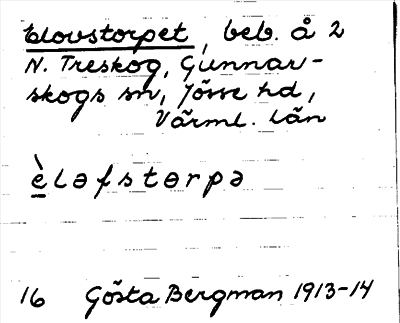 Elovstorpet, beb. å 2
N. Treskog, Gunnar-
skogs sn, Jösse hd,
Värml. län
è̱ləfstɵrpə
16 Gösta Bergman 1913-14